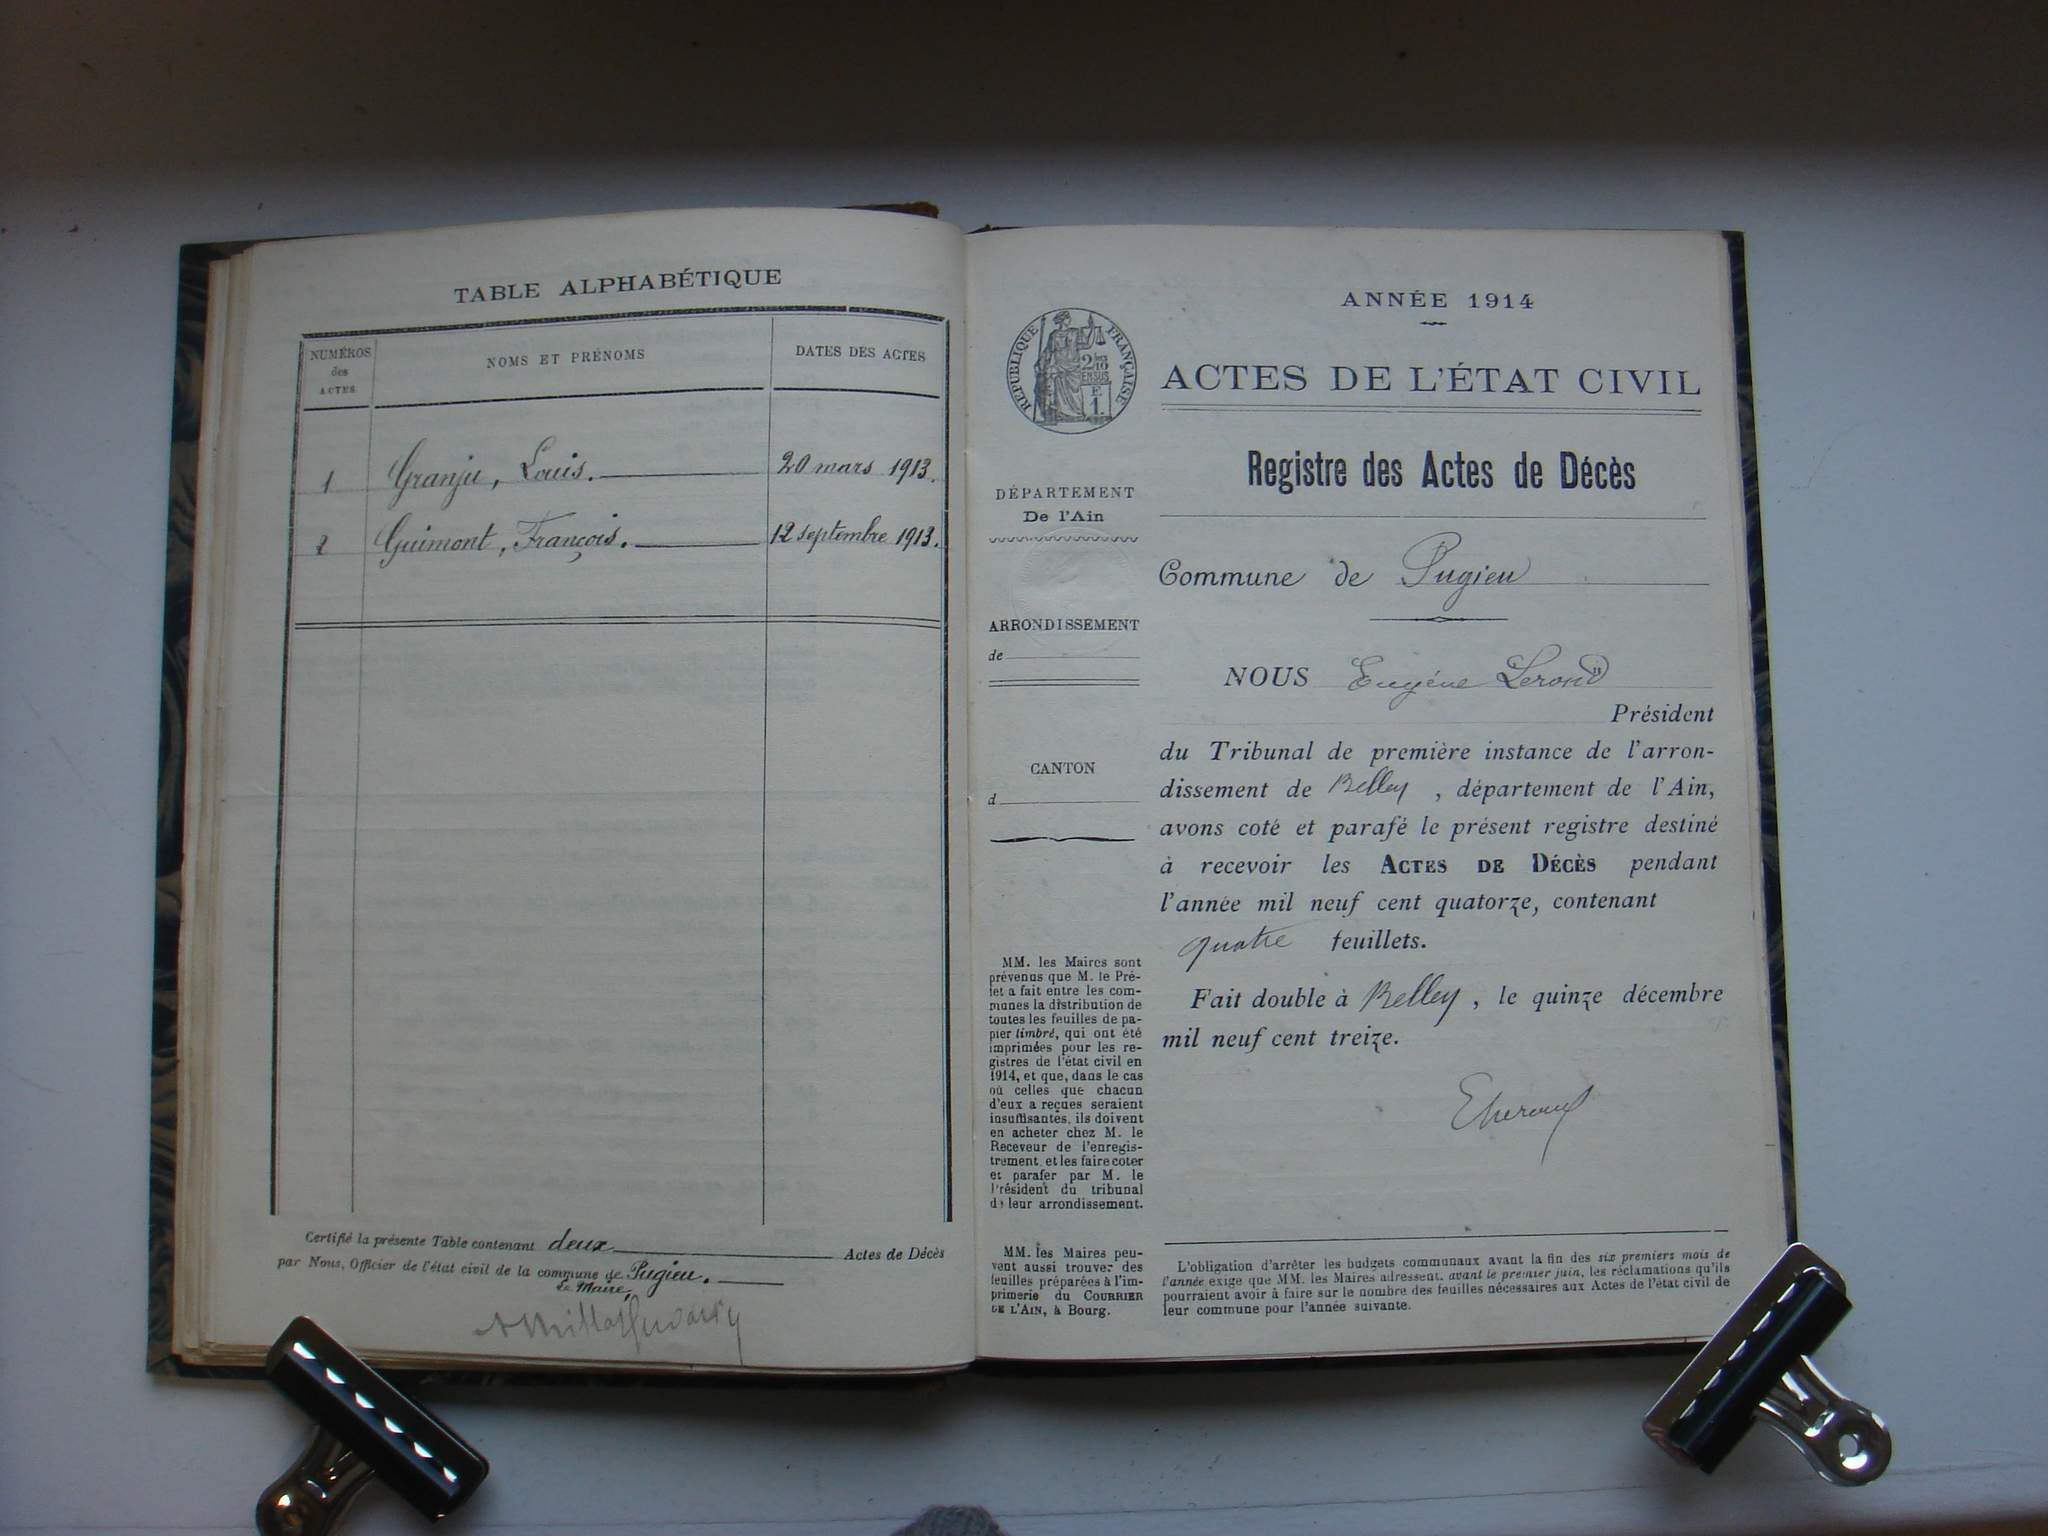 TABLE ALPHABÉTIQUE
NUMÉROS
des
ACTES
NOMS ET PRÉNOMS
DATES DES ACTES
1 Granju, Louis. 20 mars 1913.
2 Guimont, François. 12 septembre 1913.
Certifié la présente Table contenant deux Actes de Décès
par Nous, Officier de l'état civil de la commune de Pugieu.
Le Maire,
ANNÉE 1914
RÉPUBLIQUE FRANÇAISE
2/10
EN SUS
F
1.
ACTES DE L'ÉTAT CIVIL
Registre des Actes de Décès
DÉPARTEMENT
De l'Ain
ARRONDISSEMENT
de
CANTON
d
Commune de Pugieu
NOUS Eugène Lerond
Président
du Tribunal de première instance de l'arron-
dissement de Belley, département de l'Ain,
avons coté et parafé le présent registre destiné
à recevoir les ACTES DE DÉCÈS pendant
l'année mil neuf cent quatorze, contenant
quatre feuillets.
Fait double à Belley, le quinze décembre
mil neuf cent treize.
MM. les Maires sont
prévenus que M. le Pré-
fet a fait entre les com-
munes la distribution de
toutes les feuilles de pa-
pier timbré, qui ont été
imprimées pour les re-
gistres de l'état civil en
1914, et que, dans le cas
où celles que chacun
d'eux a reçues seraient
insuffisantes, ils doivent
en acheter chez M. le
Receveur de l'enregis-
trement et les faire coter
et parafer par M. le
Président du tribunal
de leur arrondissement.
MM. les Maires peu-
vent aussi trouver des
feuilles préparées à l'im-
primerie du COURRIER
DE L'AIN, à Bourg.
L'obligation d'arrêter les budgets communaux avant la fin des six premiers mois de
l'année exige que MM. les Maires adressent, avant le premier juin, les réclamations qu'ils
pourraient avoir à faire sur le nombre des feuilles nécessaires aux Actes de l'état civil de
leur commune pour l'année suivante.